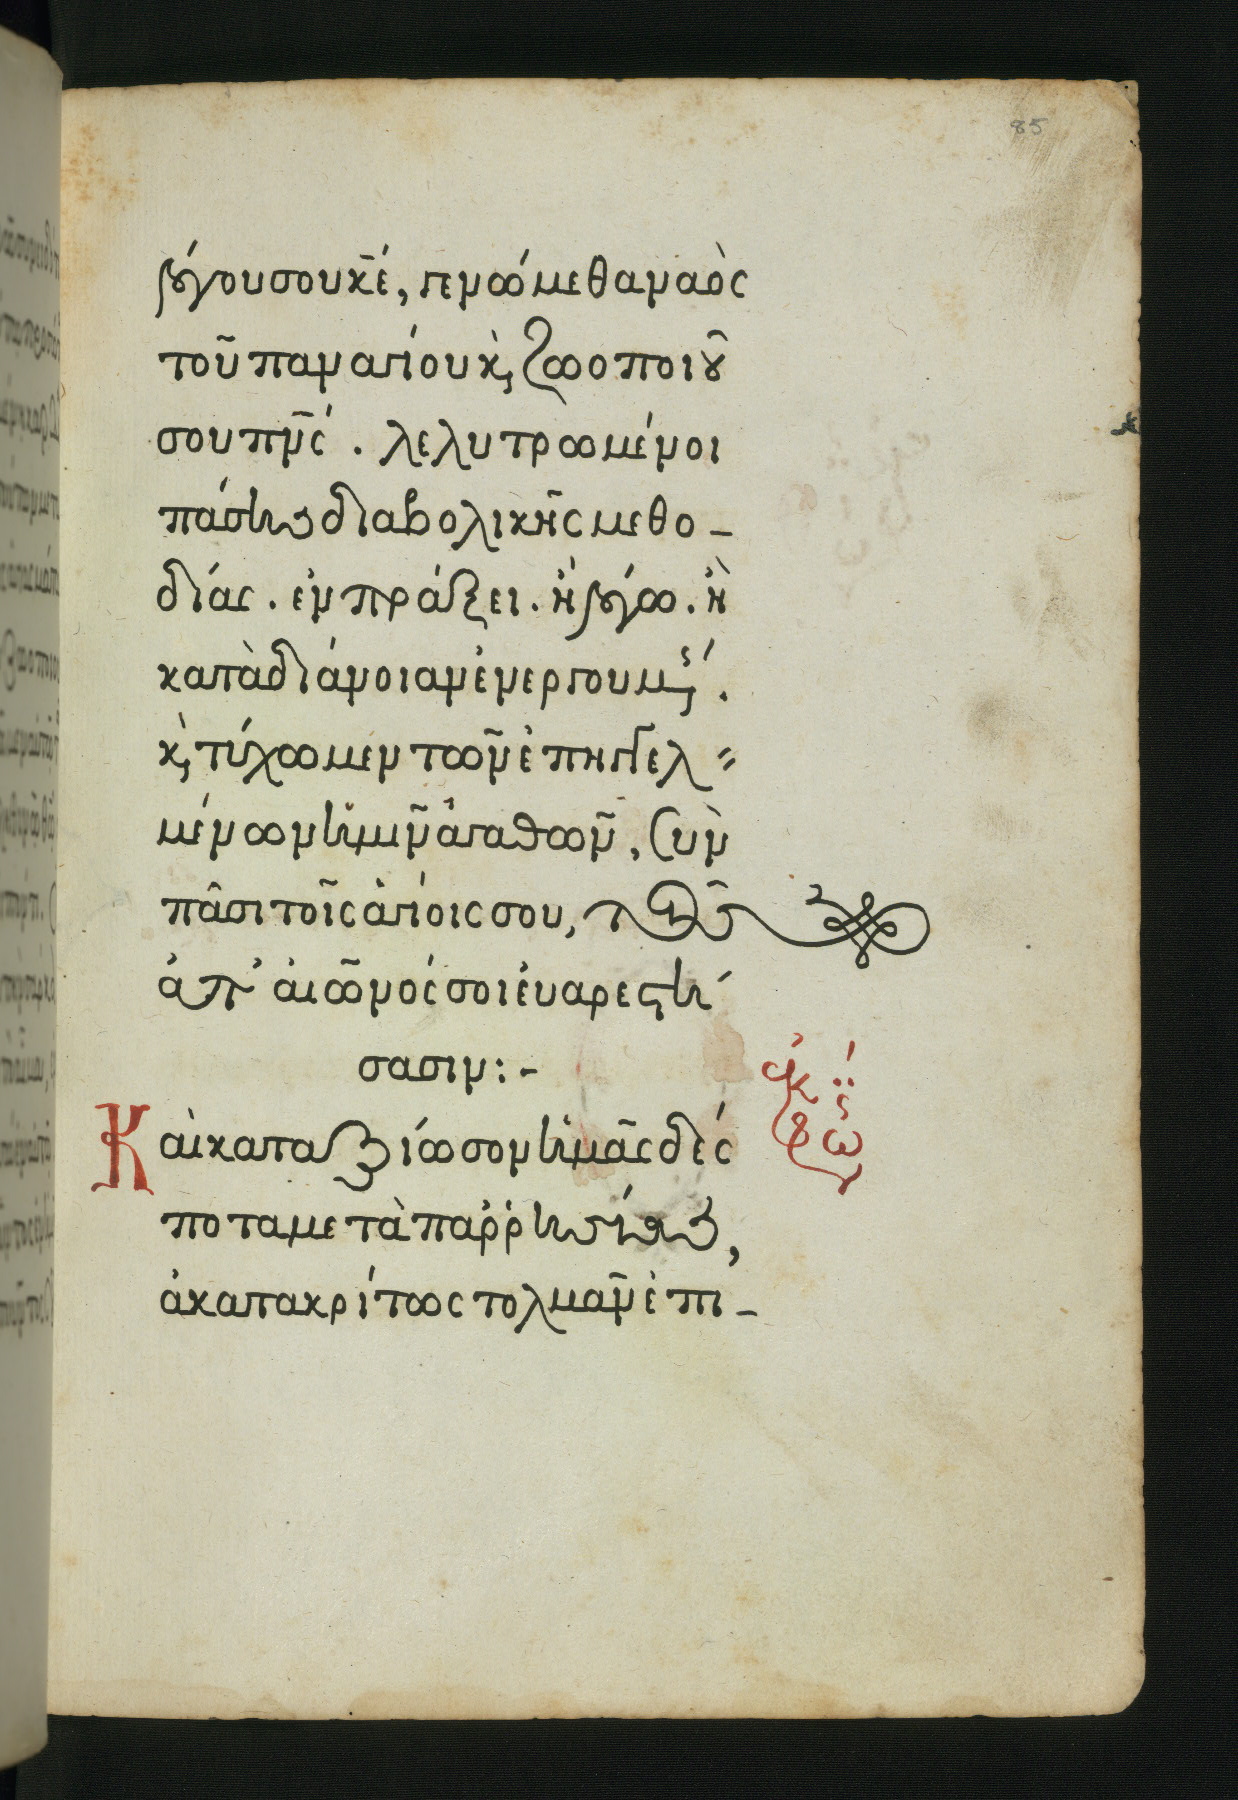 85
λόγου σου κ̅ε̅, γενώμεθα ναὸς
τοῦ παναγίου κ̀, ζωοποιοῦ
σου πν̅ς́. λελυτρωμένοι
πάσης διαβολικῆς μεθο-
δίας. ἐν πράξει. ἢ λόγω. ἢ
κατὰ διάνοιαν ἐνεργουμένης.
κ̀, τύχωμεν τῶν ἐπηγγελ
μένων ἡμῖν ἀγαθῶν, σὺν
πᾶσι τοῖς ἁγίοις σου, τοῖς
ἀπ' αἰῶνός σοι εὐαρεστή
σασιν:-
Καὶ καταξίωσον ἡμᾶς δές
ποτα μετὰ παῤῥησίας,
ἀκατακρίτως τολμᾶν ἐπι-